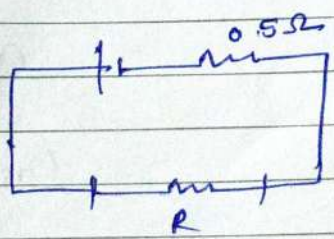 0.5Ω
R